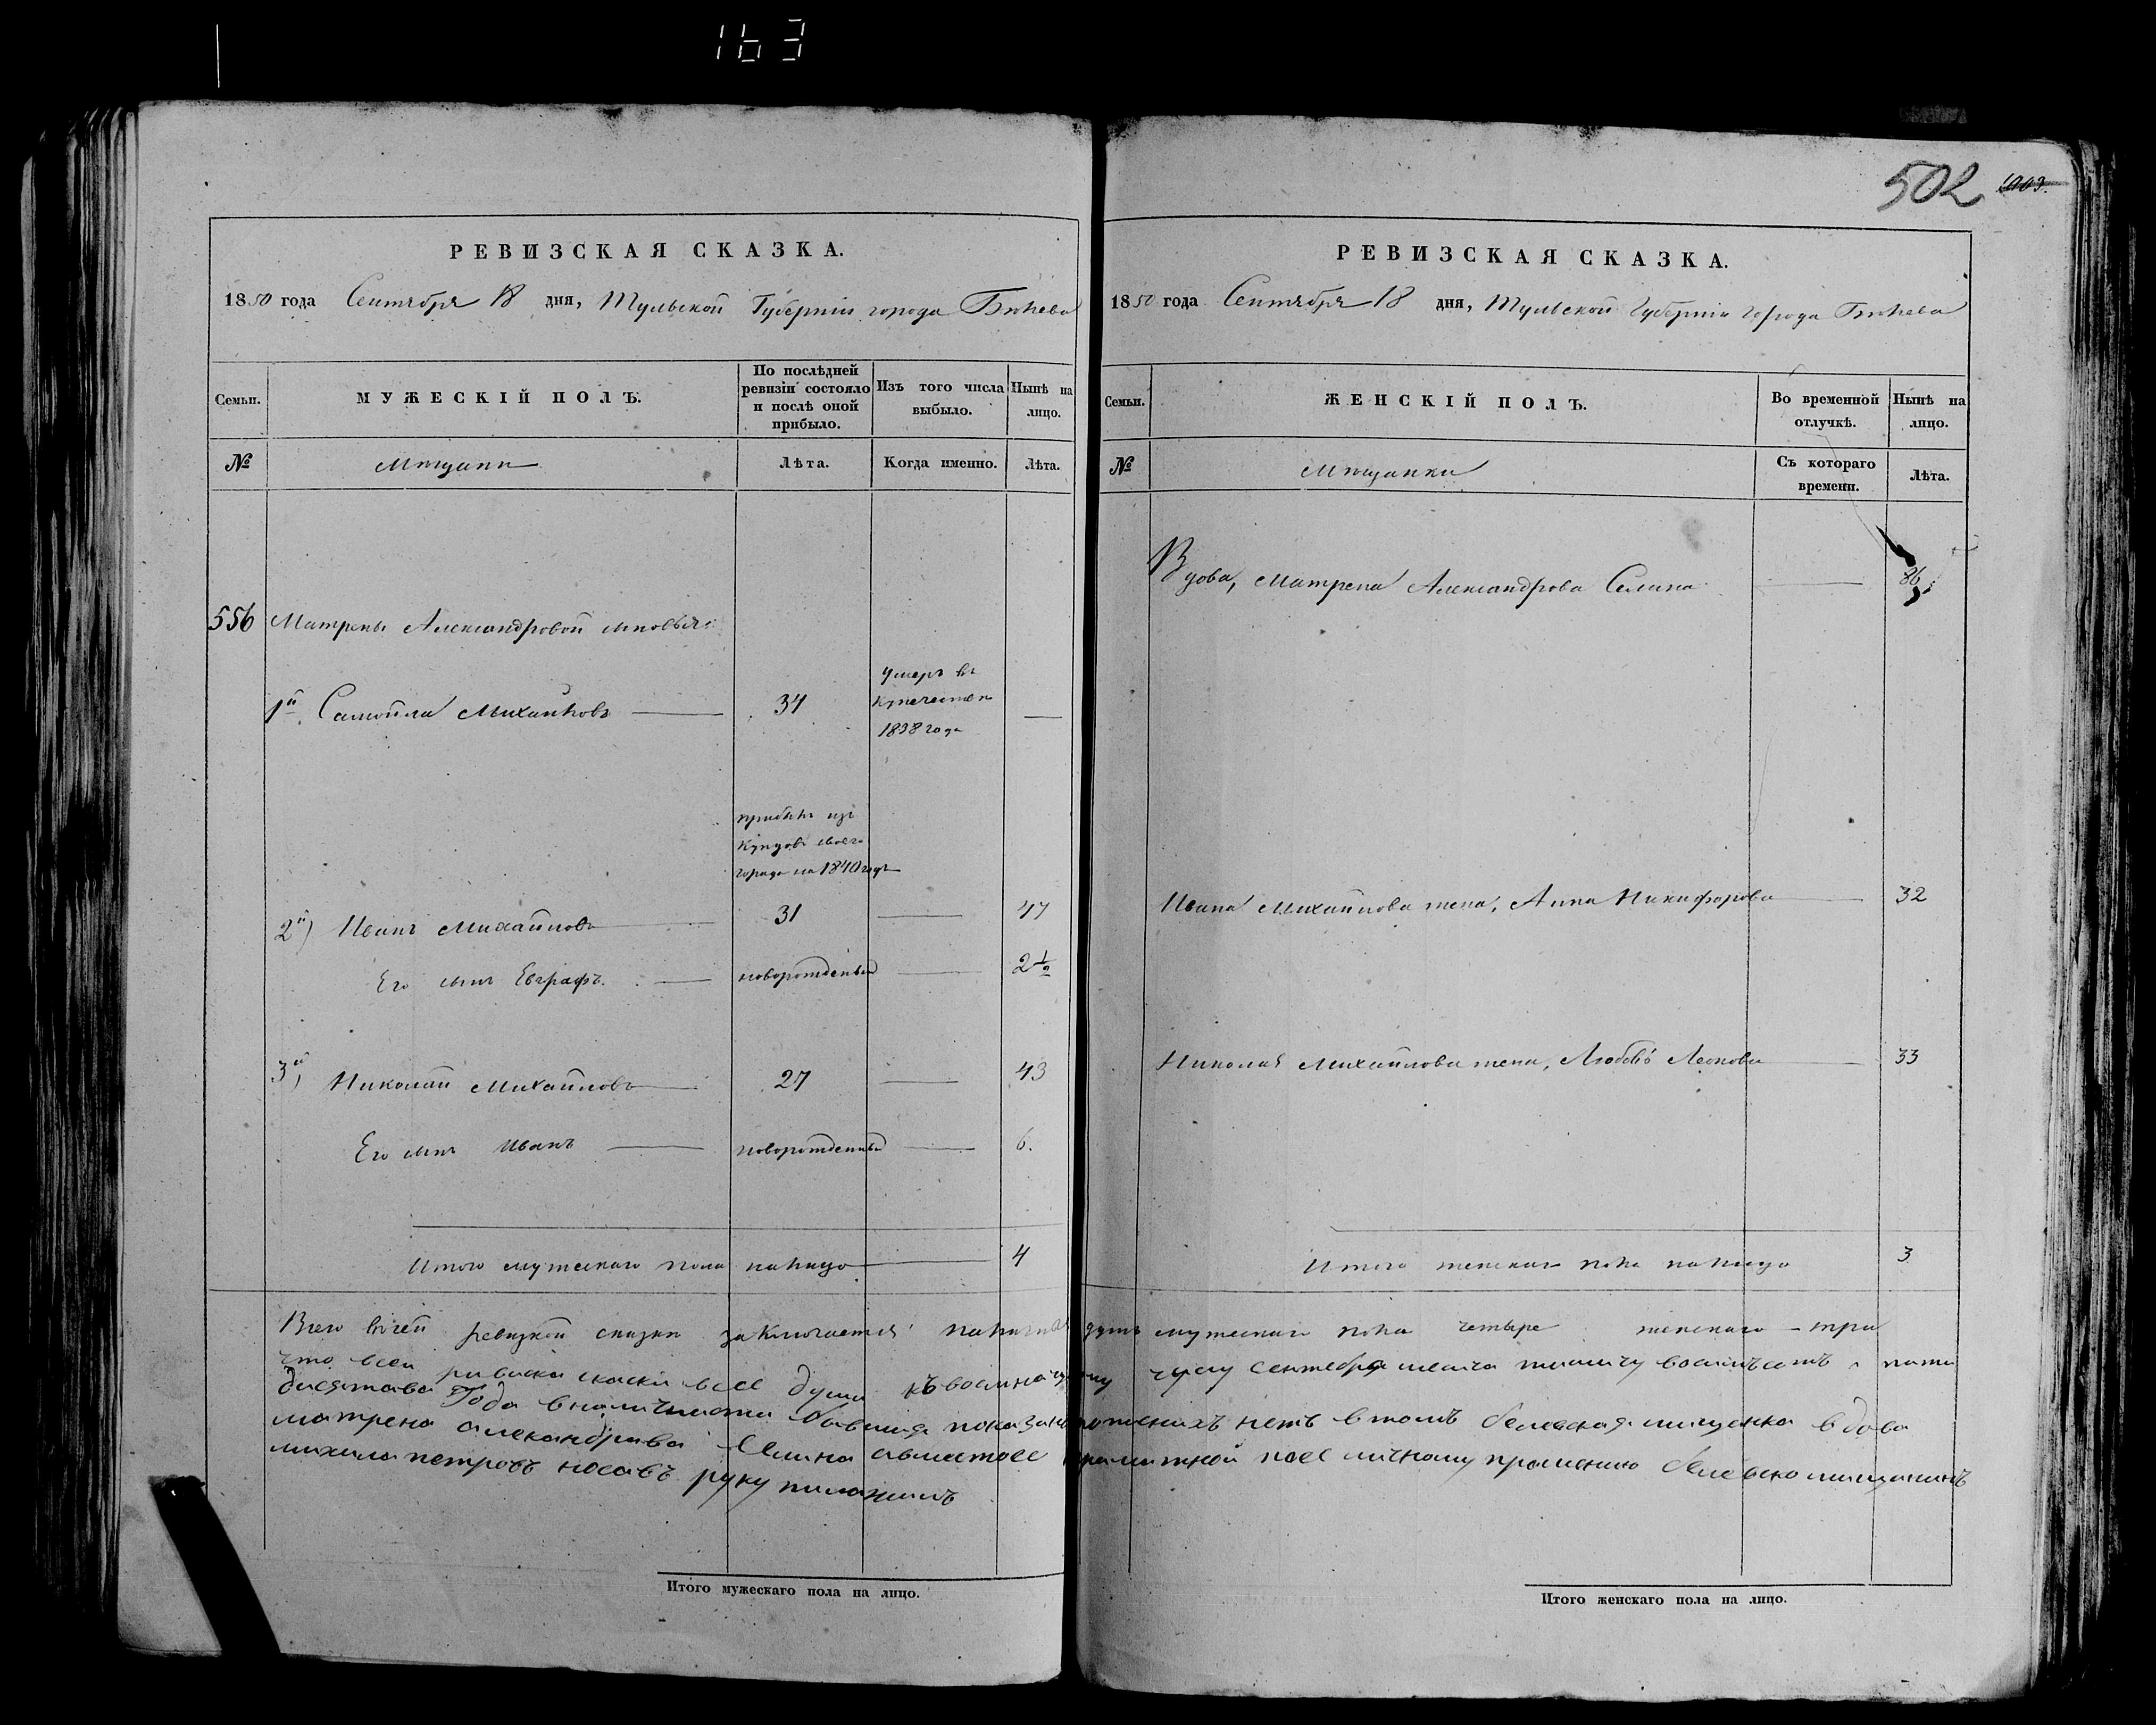 163
502 1003.
РЕВИЗСКАЯ СКАЗКА.
1850 года Сентября 18 дня, Тульской Губернiи города Бѣлева
Семьи.
МУЖЕСКIЙ ПОЛЪ.
По послѣдней ревизiи состояло и послѣ оной прибыло.
Изъ того числа выбыло.
Нынѣ на лицо.
№
Мѣщани
Лѣта.
Когда именно.
Лѣта.
556 Матрены Александровой сыновья:
умеръ въ
купечестве
1838 года
1й. Самойла Михайловъ 34
прибылъ изъ
Купцовъ своего
города на 1840 годъ
2й) Иванъ Михайловъ 31 47
Его сынъ Евграфъ. новорожденный 2 1/2
3й) Николай Михайловъ 27 43
Его сынъ Иванъ новорожденный 6.
Итого мужескаго пола налицо 4
РЕВИЗСКАЯ СКАЗКА.
1850 года Сентября 18 дня, Тульской Губернiи города Бѣлева
Семьи.
ЖЕНСКIЙ ПОЛЪ.
Во временной отлучкѣ.
Нынѣ на лицо.
№
Мѣщанки
Съ котораго времени.
Лѣта.
Вдова, Матрена Александрова Селина 86
Ивана Михайлова жена, Анна Никифорова 32
Николая Михайлова жена, Любовь Леонова 33
Итого женскаго пола налицо 3
Всего въ сей ревизкой сказки заключается наличныхъ душъ мужескаго пола четыре женскаго - три
что всей ривиски скаски все души къ восмнацатому числу сентебря месяца тысичу восимьсотъ пяти
десятава Года в наличнасти бывшия показаны
потаеныхъ нетъ в томъ белевская мищенка вдова
матрена александрава Селина авместое
неграматной поее личному прашению белевской мищининъ
михила петровъ носавъ руку приложилъ
Итого мужескаго пола на лицо.
Итого женскаго пола на лицо.